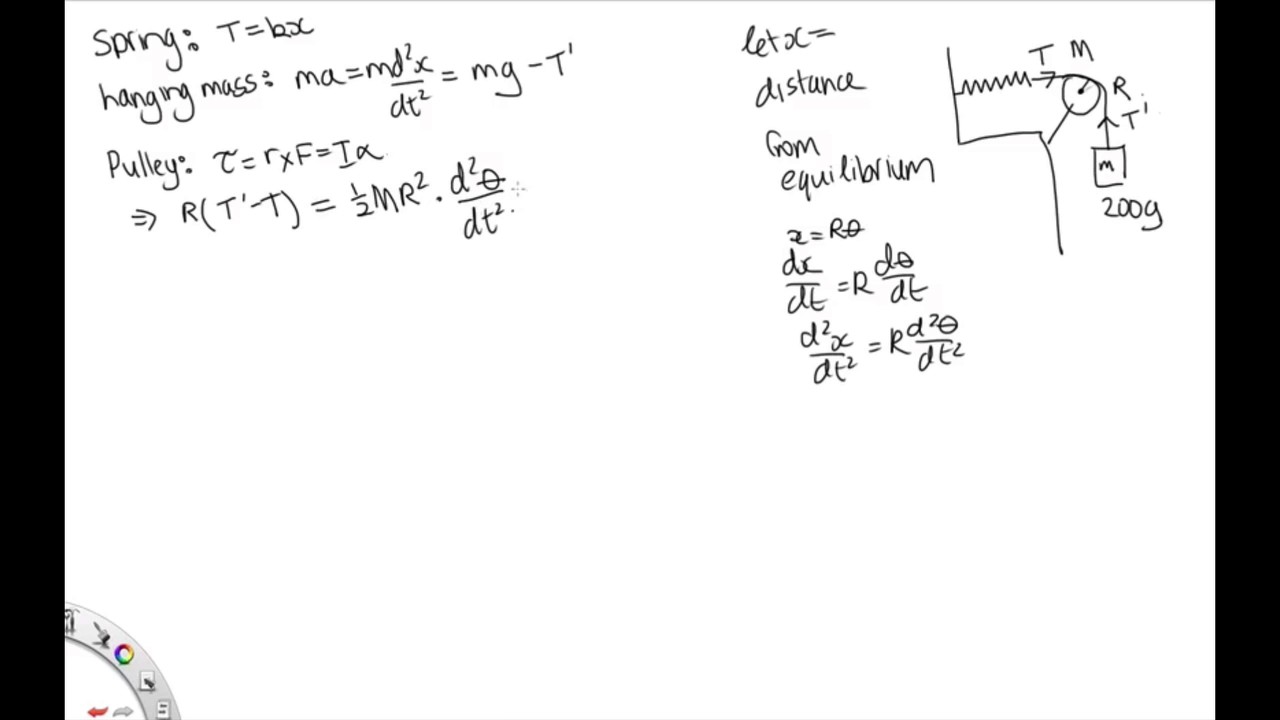 Spring: T=bx
hanging mass: ma=md²x/dt² = mg-T'
Pulley: τ=r×F=Iα
⇒ R(T'-T) = ½MR² · d²θ/dt²
let x=
distance
from
equilibrium
x=Rθ
dx/dt =R dθ/dt
d²x/dt² =R d²θ/dt²
T M
R
T'
m
200g